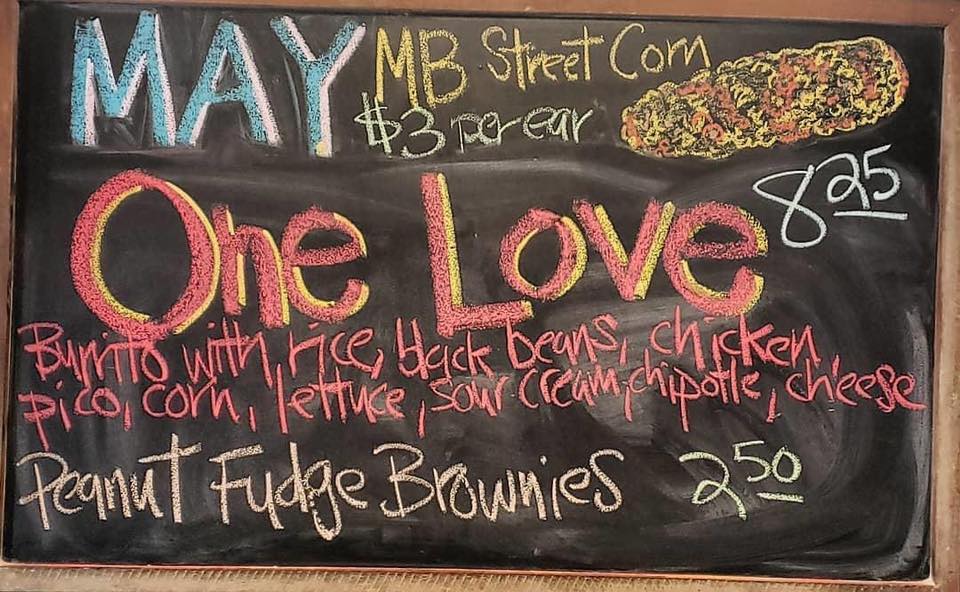 MAY MB Street Corn
$3 per ear
One Love 8 25
Burrito with rice, black beans, chicken,
pico, corn, lettuce, sour cream, chipotle, cheese
Peanut Fudge Brownies 2 50